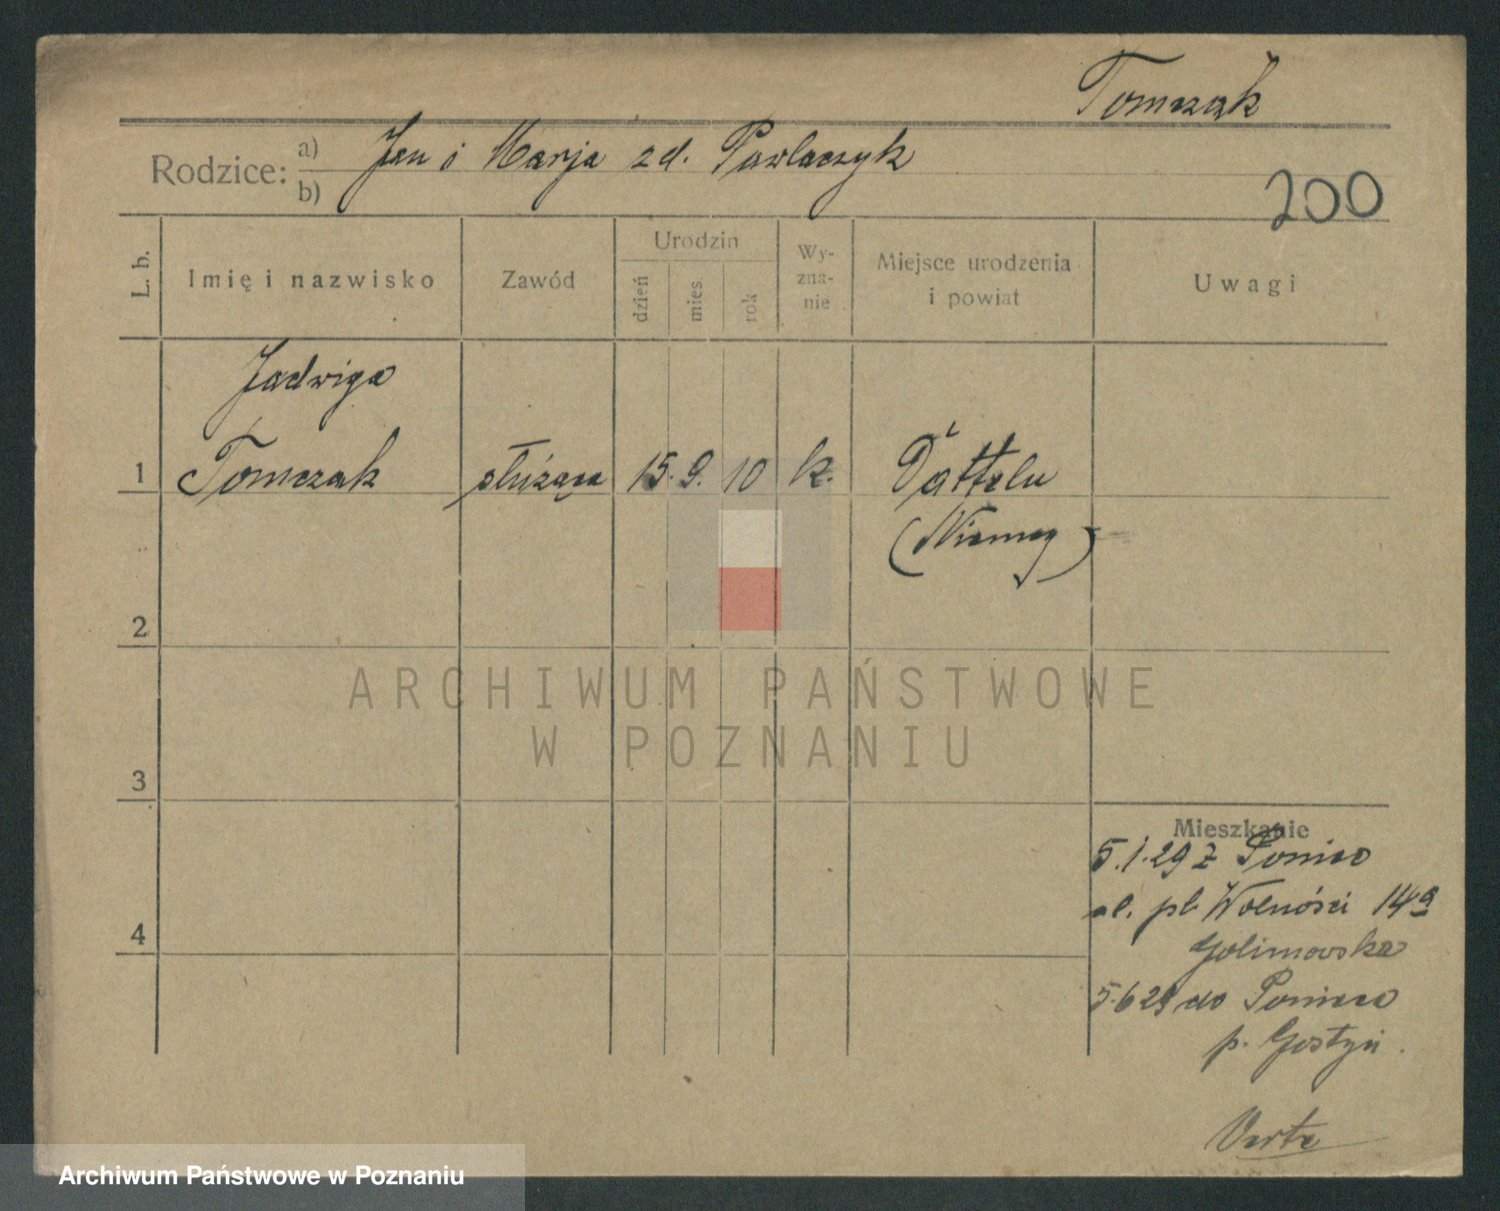 Tomczak
Rodzice: a) Jan i Marja zd. Pawlaczyk
b)
200
L. b.
Imię i nazwisko
Zawód
Urodzin
dzień
mies.
rok
Wy-
zna-
nie
Miejsce urodzenia
i powiat
Uwagi
Jadwiga
1 Tomczak służąca 15. 9. 10 k. Datteln
(Niemcy)
2
3
4
Mieszkanie
5.1.29 z Poniec
pl. Wolności 14a
Golimowska
5.6 29 do Poniec
p. Gostyń.
Verte
ARCHIWUM PAŃSTWOWE
W POZNANIU
Archiwum Państwowe w Poznaniu